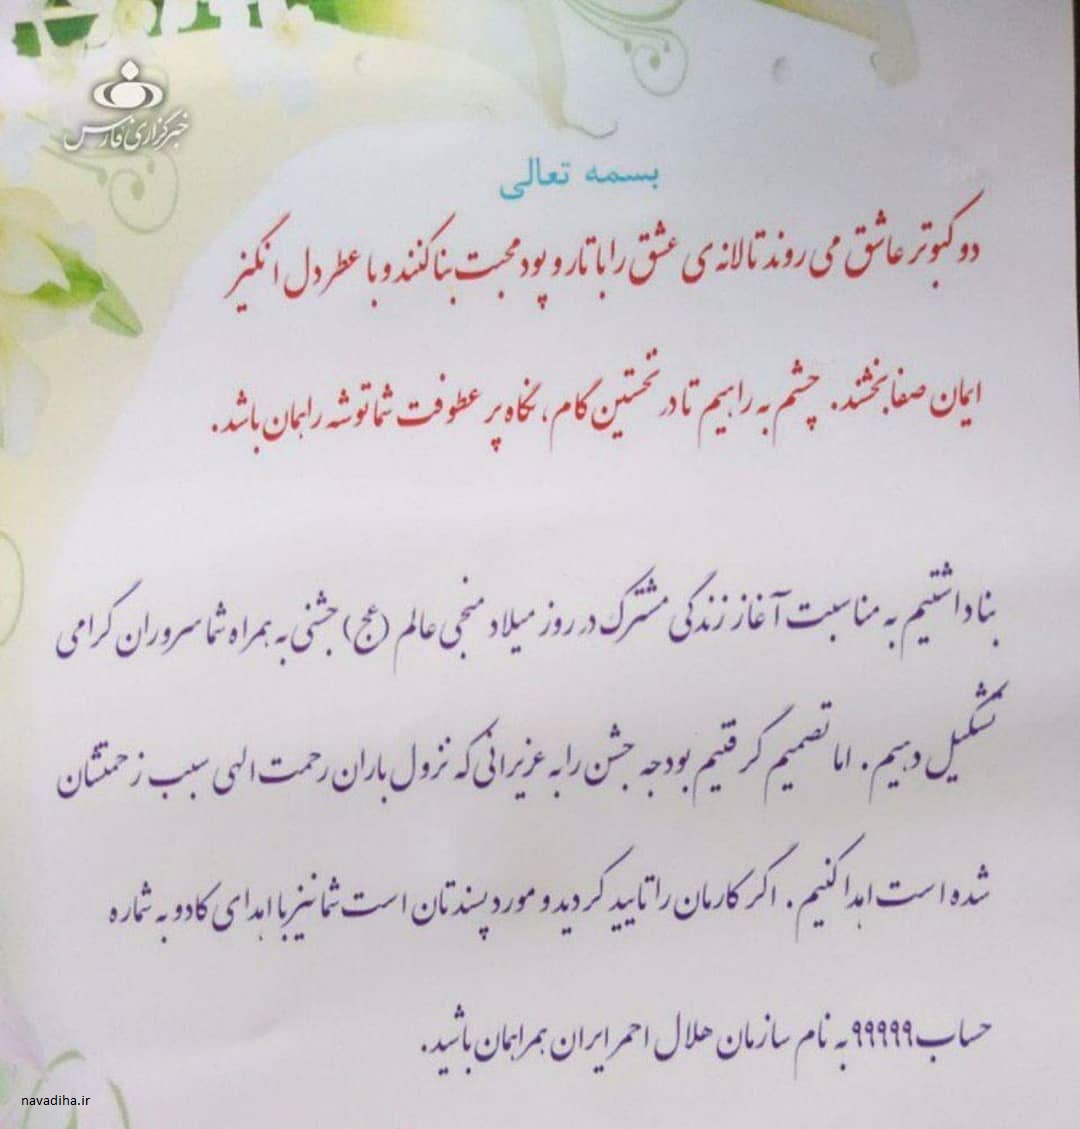 خبرگزاری فارس
بسمه تعالی
دو کبوتر عاشق می روند تا لانه ی عشق را با تار و پود محبت بنا کنند و با عطر دل انگیز
ایمان صفا بخشند. چشم به راهیم تا در نخستین گام، نگاه پر عطوفت شما توشه راهمان باشد.
بنا داشتیم به مناسبت آغاز زندگی مشترک در روز میلاد منجی عالم (عج) جشنی به همراه شما سروران گرامی
تشکیل دهیم. اما تصمیم گرفتیم بودجه جشن را به عزیزانی که نزول باران رحمت الهی سبب زحمتشان
شده است اهدا کنیم. اگر کارمان را تایید کردید و مورد پسندتان است شما نیز با اهدای کادو به شماره
حساب ۹۹۹۹۹ به نام سازمان هلال احمر ایران همراهمان باشید.
navadiha.ir